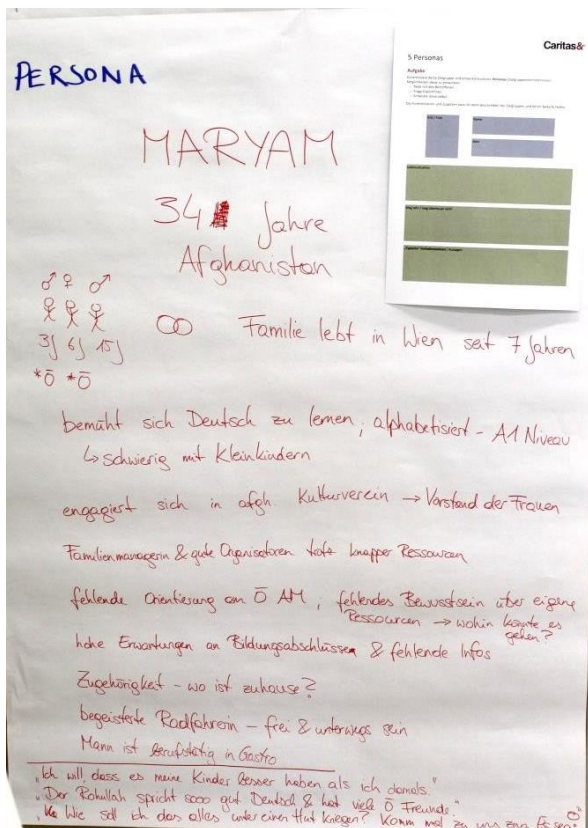 PERSONA
Caritas&
5 Personas
Aufgabe
MARYAM
34 Jahre
Afghanistan
♂ ♀ ♂
3J 6J 15J
*Ö *Ö
Familie lebt in Wien seit 7 Jahren
bemüht sich Deutsch zu lernen, alphabetisiert - A1 Niveau
↳ schwierig mit Kleinkindern
engagiert sich in afgh. Kulturverein → Vorstand der Frauen
Familienmanagerin & gute Organisatoren trotz knapper Ressourcen
fehlende Orientierung am Ö AM, fehlendes Bewusstsein über eigene
Ressourcen → wohin könnte es
gehen?
hohe Erwartungen an Bildungsabschlüssen & fehlende Infos
Zugehörigkeit - wo ist zuhause?
begeisterte Radfahrerin - frei & unterwegs sein
Mann ist berufstätig in Gastro
„Ich will, dass es meine Kinder besser haben als ich damals."
„Der Rohullah spricht sooo gut Deutsch & hat viele Ö Freunde."
„Wie soll ich das alles unter einen Hut kriegen? Komm mal zu uns zum Essen!"